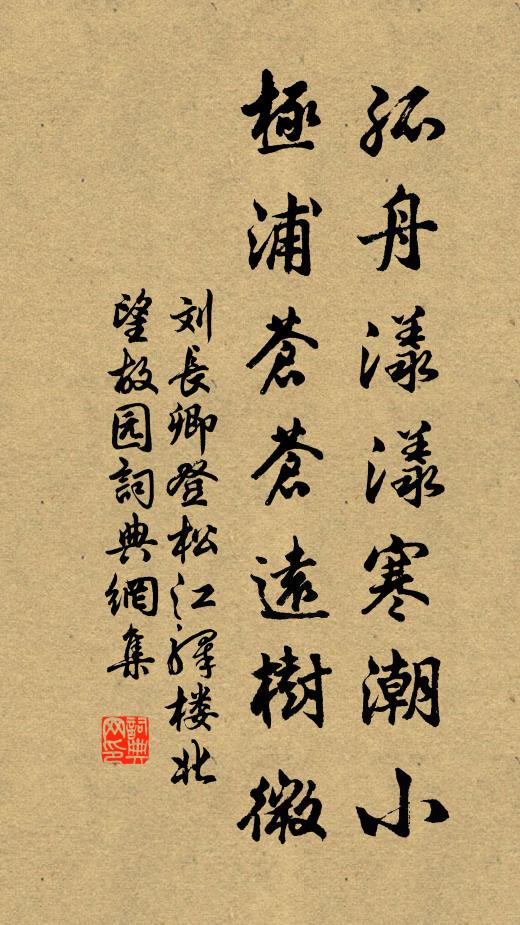 孤舟漾漾寒潮小
極浦蒼蒼遠樹微
刘長卿登松江驛楼北
望故园詞典網集
詞典
网印